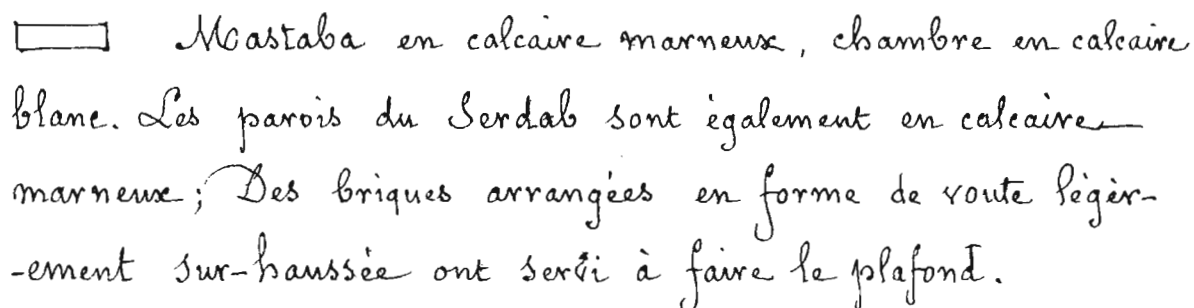 Mastaba en calcaire marneux, chambre en calcaire
blanc. Les parois du Serdab sont également en calcaire
marneux; Des briques arrangées en forme de voute légèr-
-ement sur-haussée ont servi à faire le plafond.